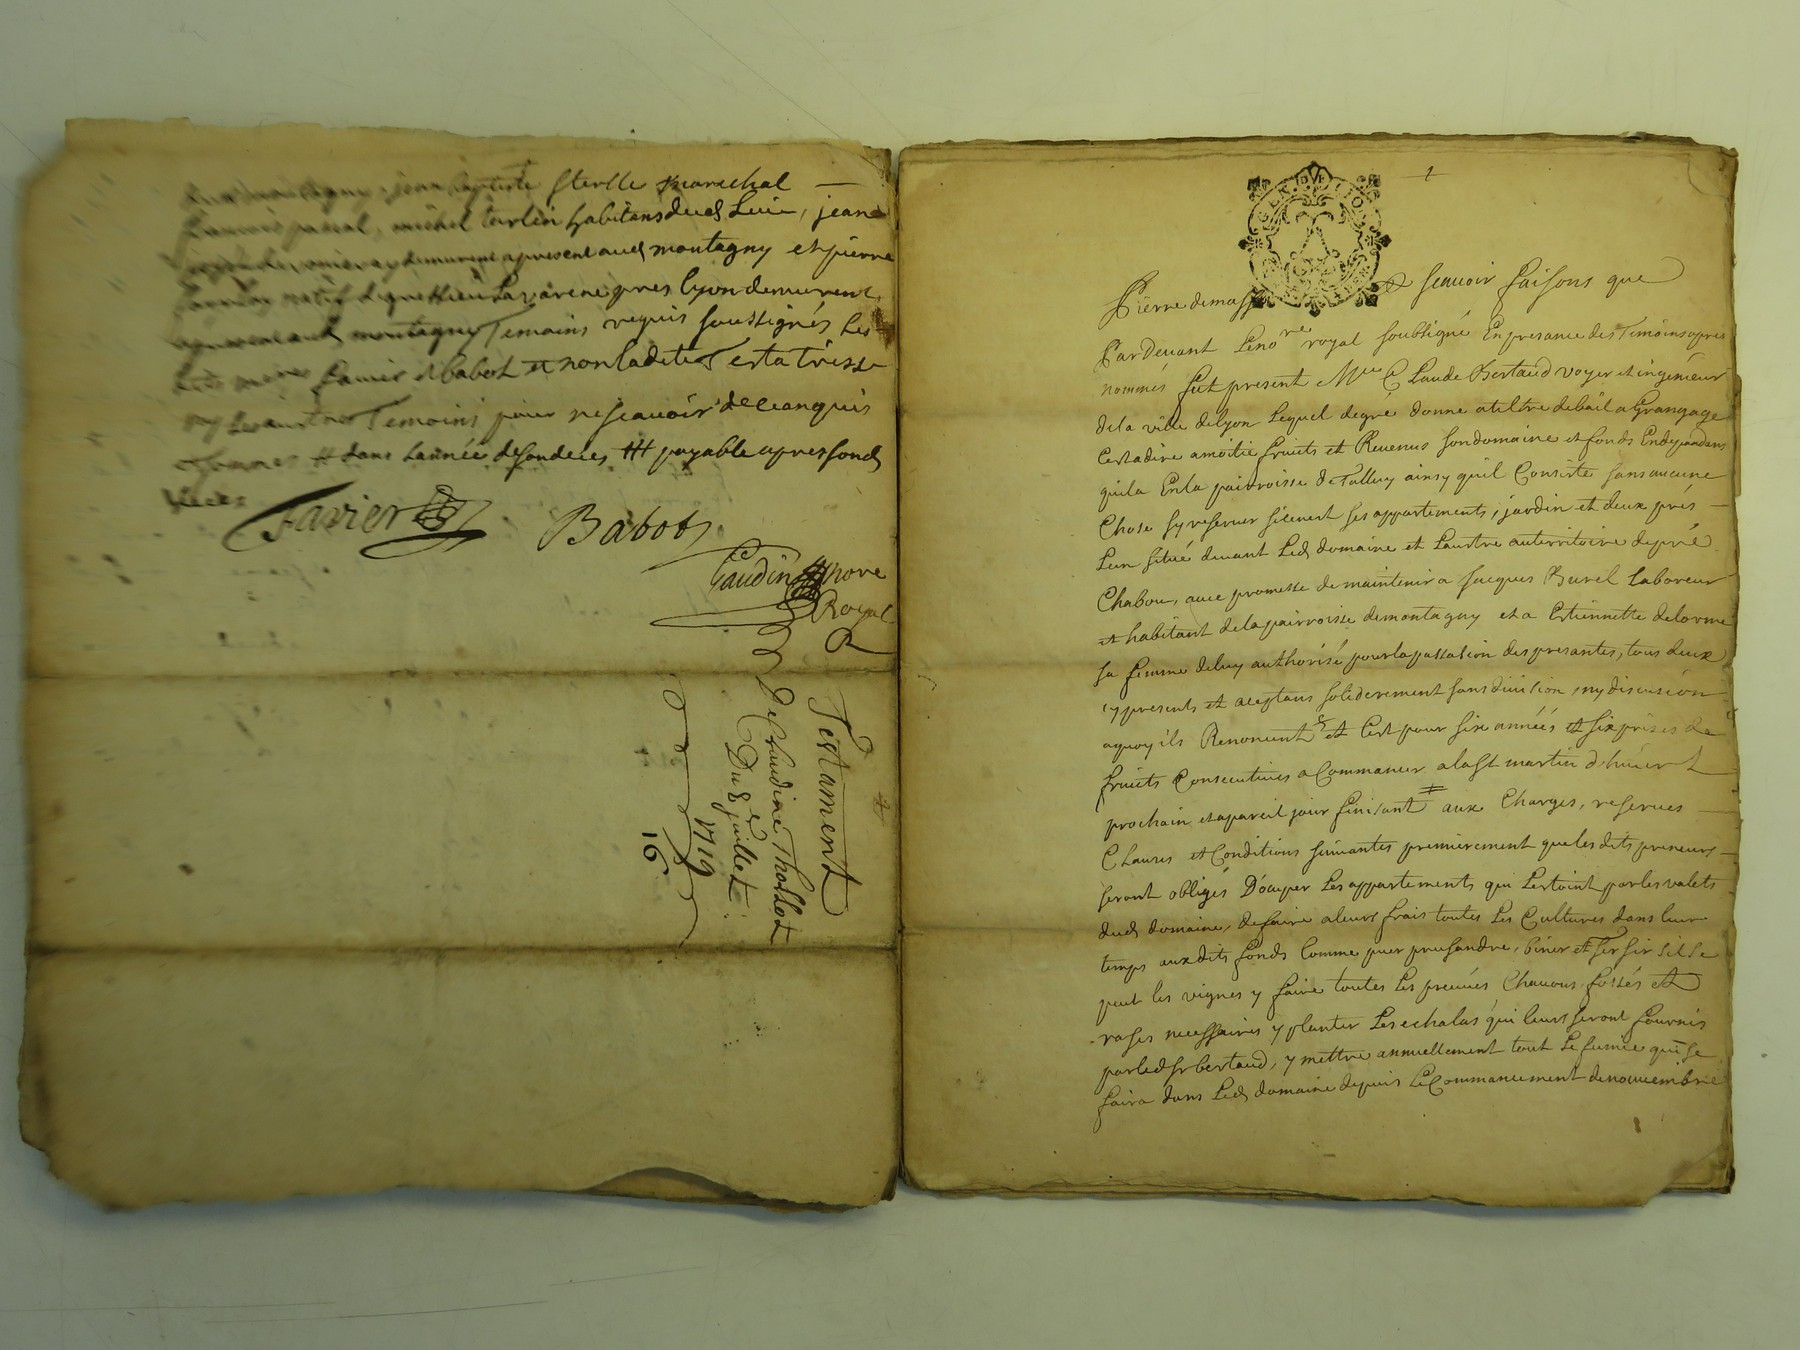 montagny, jean baptiste sterlle mareschal —
francois pascal, michel terlin habitans dud Lieu, jean
demurent apresent aud montagny et pierre
natif de La varene pres lyon demurent
apresent aud montagny Temoins requis soussignés Les
Lesd Favier et Babot et non ladite Testatrisse
ny Les autres Temoins pour ne scauoir de ce enquis
et sommes # dans l'année de son deces ## payable apres son d
deces
Favier
Babot
Gaudin nore
Royal
R
Testament
De Claudine Thollot
Du 8e juillet
1719
16
1
Pierre dumas & scauoir faisons que
Par Deuant Le nore royal soubsigné En presance des Temoins apres
nommés fut present Mre Claude Bertaud voyer et ingenieur
de la ville de lyon Lequel de gré donne a tiltre de bail a Grangage
Cest a dire a moitié fruits et Reuenus son domaine et fonds En dependans
quil a En la parroisse de Tallury ainsy quil Consiste sans aucune
Chose sy reseruer si ce nest ses appartements, jardin et deux prés —
Lun situé deuant Led domaine et Lauttre au territoire du pré
Chabou, auec promesse de maintenir a Jacques Burel Laboreur
et habitant de la parroisse de montagny et a Estiennette delorme
sa femme de luy authorisé pour la passasion des presantes, tous deux
ypresents et aceptans soliderement sans diuision ny discusion
aquoy ils Renoncent & et Cest pour six années et six prises de
fruits Consecutiues a Commancer a la st martin d'hiuert
prochain et a pareil jour finisant # aux Charges, reserues —
Clauses et Conditions suiuantes premierement que les dits preneurs
seront obligés D'ocuper Les appartements qui L'estoint par les valets
dud domaine, de faire a leurs frais toutes Les Cultures dans leur
temps aux dits fonds Comme puer preusandre, biner et Tersir sil se
peut les vignes y faire toutes Les preuues Chauons fossés et
rases necessaires y planter Les echalas qui leurs seront fournis
par led sr bertaud, y mettre annuellement tout Le fumie qui se
faira dans Led domaine depuis Le Commancement de nouuembre